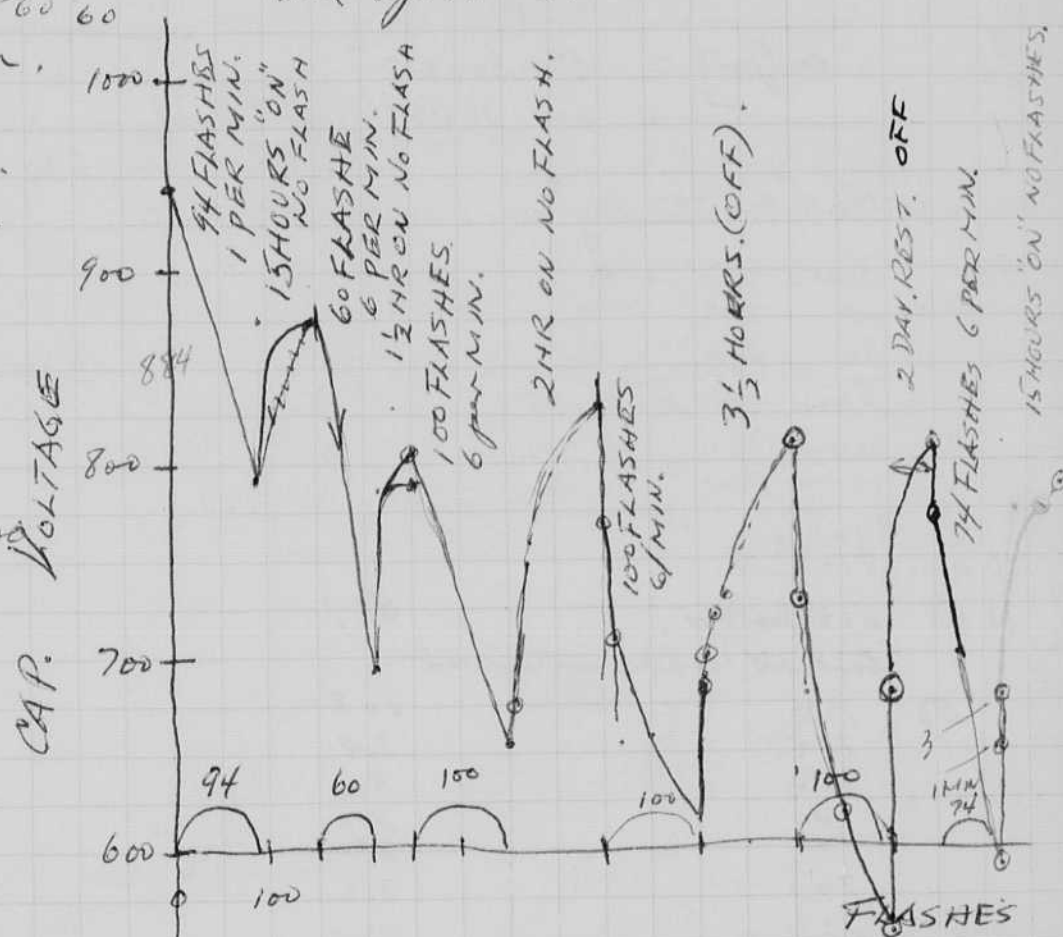 60 60
1000
900
884
800
700
600
CAP. VOLTAGE
94 FLASHES
1 PER MIN.
15 HOURS "ON"
NO FLASH
60 FLASHE
6 PER MIN.
1 1/2 HR ON NO FLASH
100 FLASHES.
6 per MIN.
2 HR ON NO FLASH.
100 FLASHES
6/MIN.
3 1/3 HOERS. (OFF).
2 DAY. REST. OFF
74 FLASHES 6 PER MIN.
15 HOURS "ON" NO FLASHES.
94
60
100
100
100
3
1 MIN
74
0
100
FLASHES